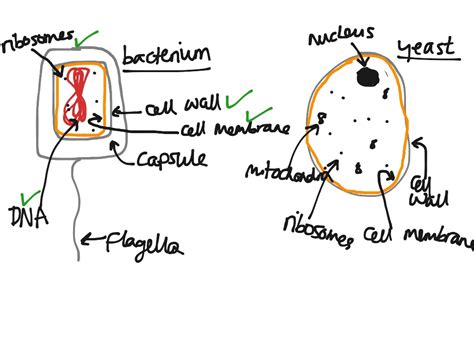 ribosomes
bacterium
cell wall
cell membrane
capsule
DNA
flagella
nucleus
yeast
mitochondria
ribosomes
cell membrane
cell
wall